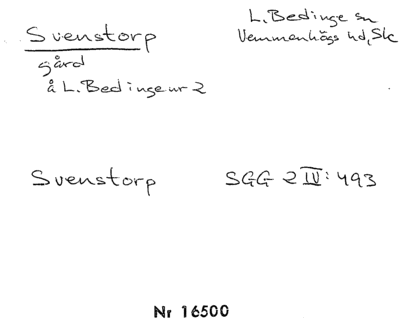 Svenstorp
gård
å L. Bedinge nr 2
L. Bedinge sn
Vemmenhögs hd, Sk
Svenstorp
SGG 2 IV: 493
Nr 16500